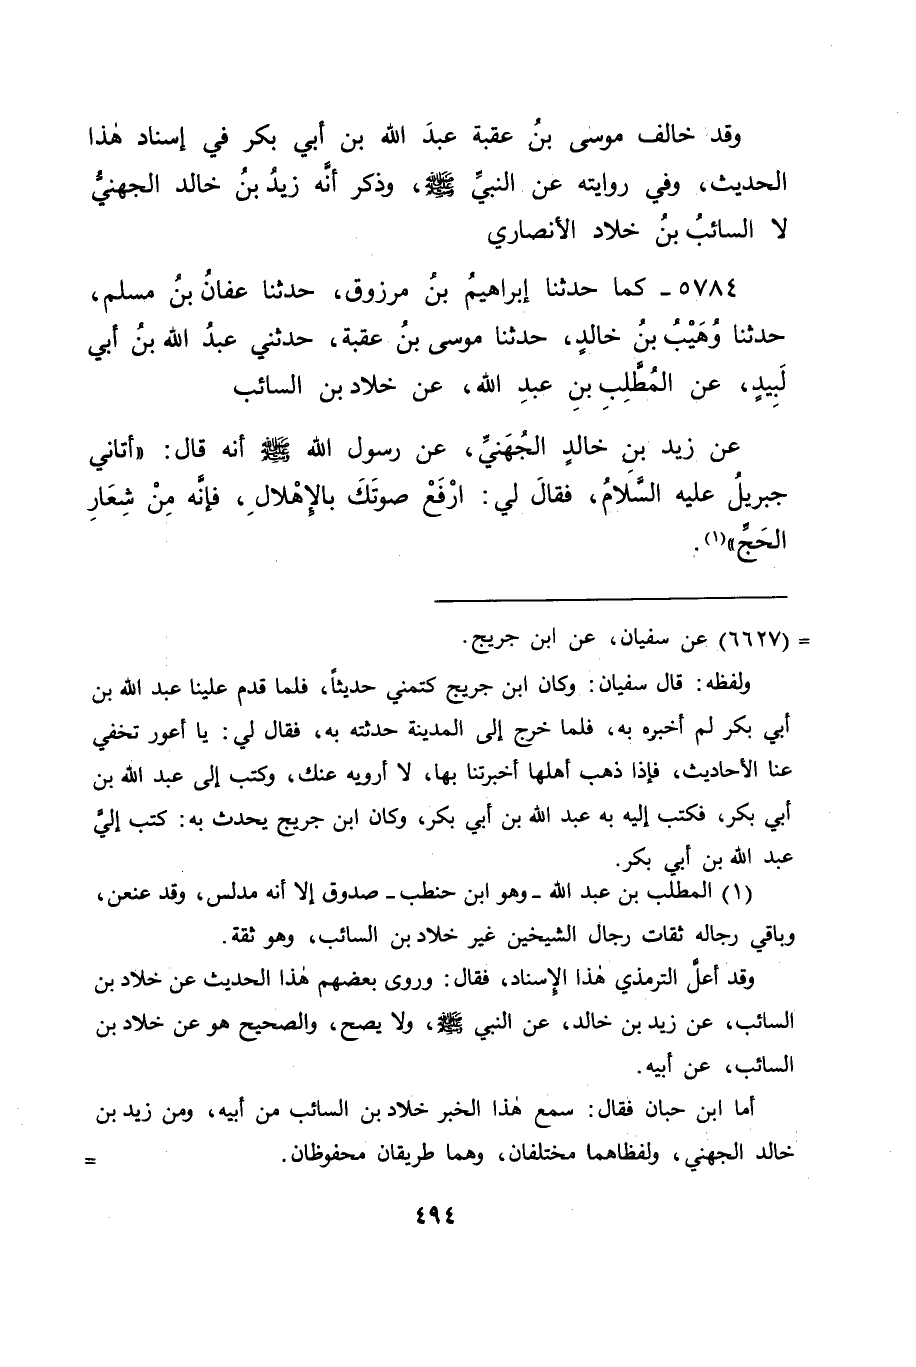 وقد خالف موسى بنُ عقبة عبدَ الله بن أبي بكر في إسناد هٰذا
الحديث، وفي روايته عن النبيِّ ﷺ، وذكر أنَّه زيدُ بنُ خالد الجهنيُّ
لا السائبُ بنُ خلاد الأنصاري
٥٧٨٤ ـ كما حدثنا إبراهيمُ بنُ مرزوق، حدثنا عفانُ بنُ مسلم،
حدثنا وُهَيْبُ بنُ خالدٍ، حدثنا موسى بنُ عقبة، حدثني عبدُ الله بنُ أبي
لَبِيدٍ، عن المُطَّلِبِ بنِ عبدِ الله، عن خلاد بن السائب
عن زيد بنِ خالدٍ الجُهَنيِّ، عن رسول الله ﷺ أنه قال: «أتاني
جبريلُ عليه السَّلامُ، فقالَ لي: ارْفَعْ صوتَكَ بالإِهْلالِ، فإنَّه مِنْ شِعَارِ
الحَجِّ»(١).
= (٦٦٢٧) عن سفيان، عن ابن جريج.
ولفظه: قال سفيان: وكان ابن جريج كتمني حديثاً، فلما قدم علينا عبد الله بن
أبي بكر لم أخبره به، فلما خرج إلى المدينة حدثته به، فقال لي: يا أعور تخفي
عنا الأحاديث، فإذا ذهب أهلها أخبرتنا بها، لا أرويه عنك، وكتب إلى عبد الله بن
أبي بكر، فكتب إليه به عبد الله بن أبي بكر، وكان ابن جريج يحدث به: كتب إليَّ
عبد الله بن أبي بكر.
(١) المطلب بن عبد الله ـ وهو ابن حنطب ـ صدوق إلا أنه مدلس، وقد عنعن،
وباقي رجاله ثقات رجال الشيخين غير خلاد بن السائب، وهو ثقة.
وقد أعلَّ الترمذي هٰذا الإِسناد، فقال: وروى بعضهم هٰذا الحديث عن خلاد بن
السائب، عن زيد بن خالد، عن النبي ﷺ، ولا يصح، والصحيح هو عن خلاد بن
السائب، عن أبيه.
أما ابن حبان فقال: سمع هٰذا الخبر خلاد بن السائب من أبيه، ومن زيد بن
خالد الجهني، ولفظاهما مختلفان، وهما طريقان محفوظان. =
٤٩٤